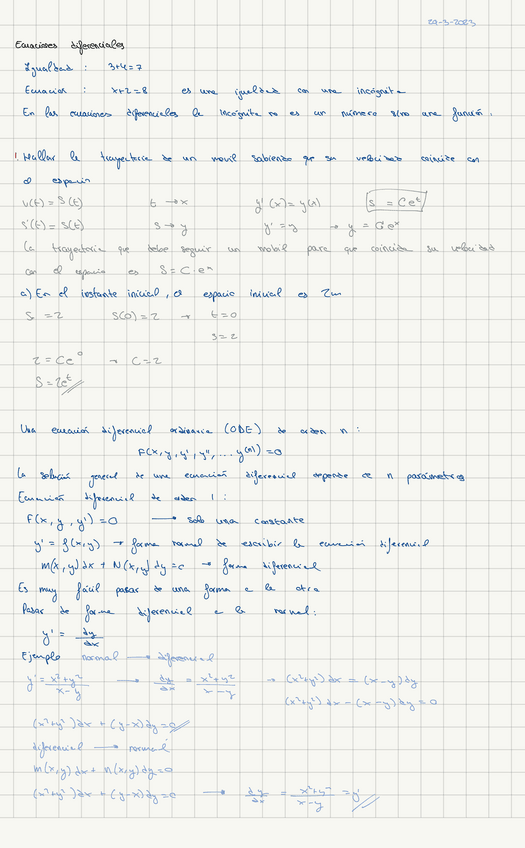 29-3-2023
Ecuaciones diferenciales
Igualdad : 3+4=7
Ecuación : x+2=8 es una igualdad con una incógnita
En las ecuaciones diferenciales la incógnita no es un número sino una función.
1. Hallar la trayectoria de un movil sabiendo que su velocidad coincide con
el espacio
v(t) = s(t) t → x y'(x) = y(x) s = Ce^t
s'(t) = s(t) s → y y' = y → y = Ce^x
La trayectoria que debe seguir un mobil para que coincida su velocidad
con el espacio es S = C e^x
a) En el instante inicial, el espacio inicial es 2m
S = 2 S(0) = 2 → t=0
s=2
2 = Ce^0 → C=2
S = 2e^t
Una ecuación diferencial ordinaria (ODE) de orden n :
F(x, y, y', y'', ... y(n)) = 0
La solución general de una ecuación diferencial depende de n parámetros
Ecuación diferencial de orden 1 :
F(x, y, y') = 0 → solo una constante
y' = f(x,y) → forma normal de escribir la ecuación diferencial
M(x,y)dx + N(x,y)dy = 0 → forma diferencial
Es muy fácil pasar de una forma a la otra
Pasar de forma diferencial a la normal:
y' = dy/dx
Ejemplo normal → diferencial
y' = x²+y²/x-y → dy/dx = x²+y²/x-y → (x²+y²)dx = (x-y)dy
(x²+y²)dx - (x-y)dy = 0
(x²+y²)dx + (y-x)dy = 0
diferencial → normal
M(x,y)dx + N(x,y)dy = 0
(x²+y²)dx + (y-x)dy = 0 → dy/dx = x²+y²/x-y = y'